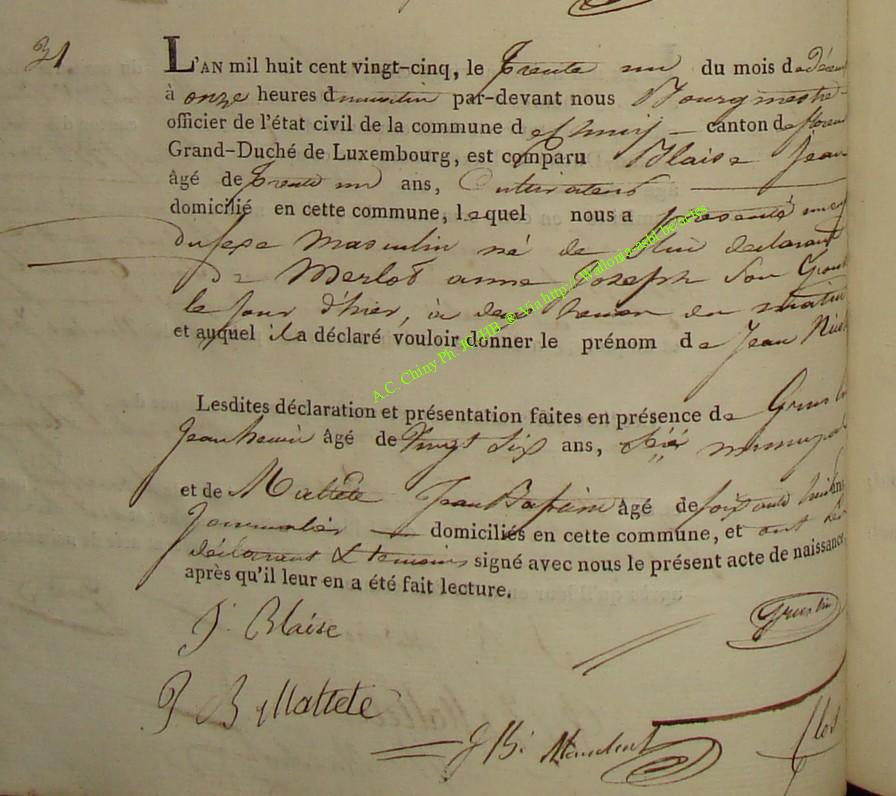 31
L'AN mil huit cent vingt-cinq, le trente un du mois de décem
à onze heures du matin par-devant nous Bourgmestre
officier de l'état civil de la commune d e Chiny canton de floren
Grand-Duché de Luxembourg, est comparu Blaise Jean
âgé de trente un ans, Cultivateur
domicilié en cette commune, lequel nous a présenté un
du sexe masculin né de lui déclarant
de Merlot anne Joseph son
le jour d'hier, à heures du matin
et auquel il a déclaré vouloir donner le prénom de Jean
Lesdites déclaration et présentation faites en présence de
Jean âgé de vingt six ans,
et de Mattete Jean Baptiste âgé de soixante
Journalier domiciliés en cette commune, et ont
déclarant & temoins signé avec nous le présent acte de naissance
après qu'il leur en a été fait lecture.
J. Blaise
J B Mattete
A.C. Chiny Ph. JCHB ® Via http://Wallonia-asbl.be/a-iss